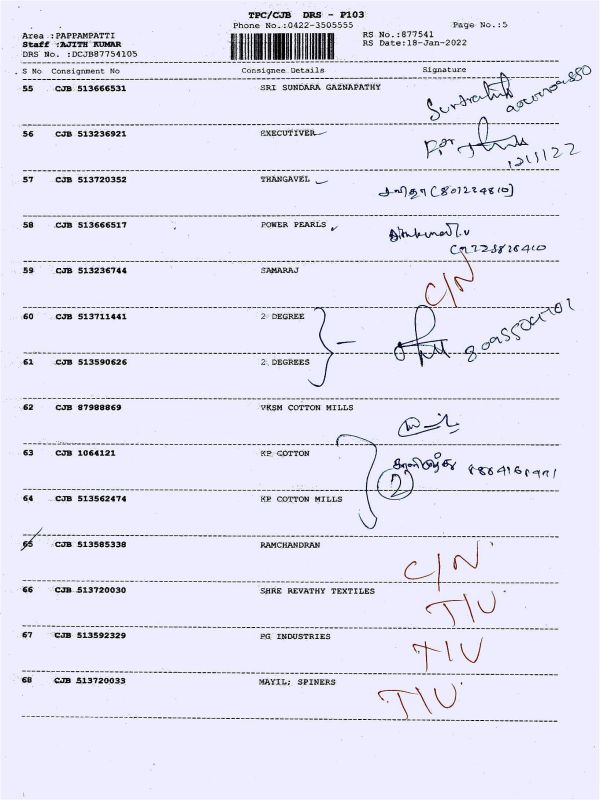 TPC/CJB DRS - P103
Phone No.:0422-3505555
Page No.:5
Area :PAPPAMPATTI
RS No.:877541
Staff :AJITH KUMAR
RS Date:18-Jan-2022
DRS No. :DCJB87754105
S No Consignment No Consignee Details Signature
55 CJB 513666531 SRI SUNDARA GAZNAPATHY
56 CJB 513236921 EXECUTIVER
57 CJB 513720352 THANGAVEL
58 CJB 513666517 POWER PEARLS
59 CJB 513236744 SAMARAJ C/N
60 CJB 513711441 2 DEGREE
61 CJB 513590626 2 DEGREES
62 CJB 87988869 VKSM COTTON MILLS
63 CJB 1064121 KP COTTON
2
64 CJB 513562474 KP COTTON MILLS
65 CJB 513585338 RAMCHANDRAN C/N
66 CJB 513720030 SHRE REVATHY TEXTILES T/U
67 CJB 513592329 PG INDUSTRIES T/U
68 CJB 513720033 MAYIL; SPINERS T/U